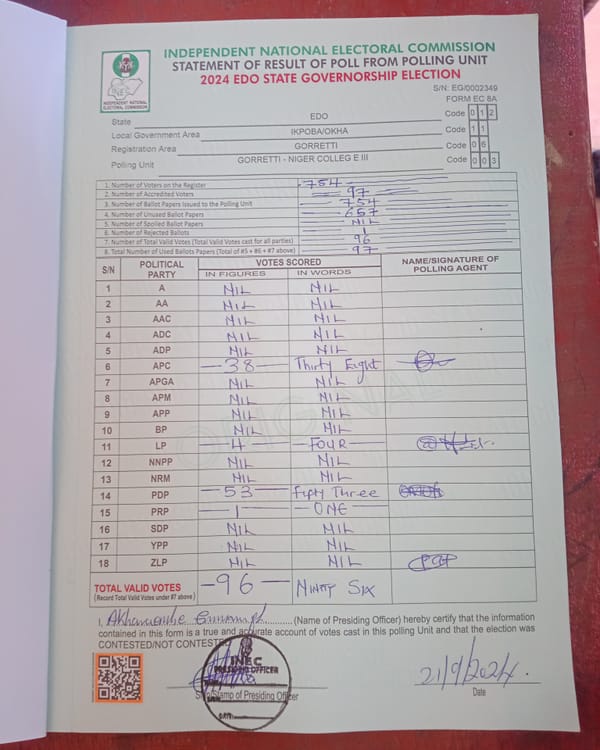 INDEPENDENT NATIONAL ELECTORAL COMMISSION
STATEMENT OF RESULT OF POLL FROM POLLING UNIT
2024 EDO STATE GOVERNORSHIP ELECTION
INEC
INDEPENDENT NATIONAL ELECTORAL COMMISSION
S/N: EG/0002349
FORM EC 8A
State EDO Code 0 1 2
Local Government Area IKPOBA/OKHA Code 1 1
Registration Area GORRETTI Code 0 6
Polling Unit GORRETTI - NIGER COLLEG E III Code 0 0 3
1. Number of Voters on the Register 754
2. Number of Accredited Voters 97
3. Number of Ballot Papers Issued to the Polling Unit 754
4. Number of Unused Ballot Papers 657
5. Number of Spoiled Ballot Papers NIL
6. Number of Rejected Ballots 1
7. Number of Total Valid Votes (Total Valid Votes cast for all parties) 96
8. Total Number of Used Ballots Papers (Total of #5 + #6 + #7 above) 97
S/N POLITICAL PARTY VOTES SCORED NAME/SIGNATURE OF POLLING AGENT
IN FIGURES IN WORDS
1 A NIL NIL
2 AA NIL NIL
3 AAC NIL NIL
4 ADC NIL NIL
5 ADP NIL NIL
6 APC 38 Thirty Eight
7 APGA NIL NIL
8 APM NIL NIL
9 APP NIL NIL
10 BP NIL NIL
11 LP 4 FOUR
12 NNPP NIL NIL
13 NRM NIL NIL
14 PDP 53 Fifty Three
15 PRP 1 ONE
16 SDP NIL NIL
17 YPP NIL NIL
18 ZLP NIL NIL
TOTAL VALID VOTES 96 NINTY SIX
(Record Total Valid Votes under #7 above)
I, (Name of Presiding Officer) hereby certify that the information
contained in this form is a true and accurate account of votes cast in this polling Unit and that the election was
CONTESTED/NOT CONTESTED
INEC
PRESIDING OFFICER
Sign/Stamp of Presiding Officer
DATE:
21/9/2024
Date
ORIGINAL